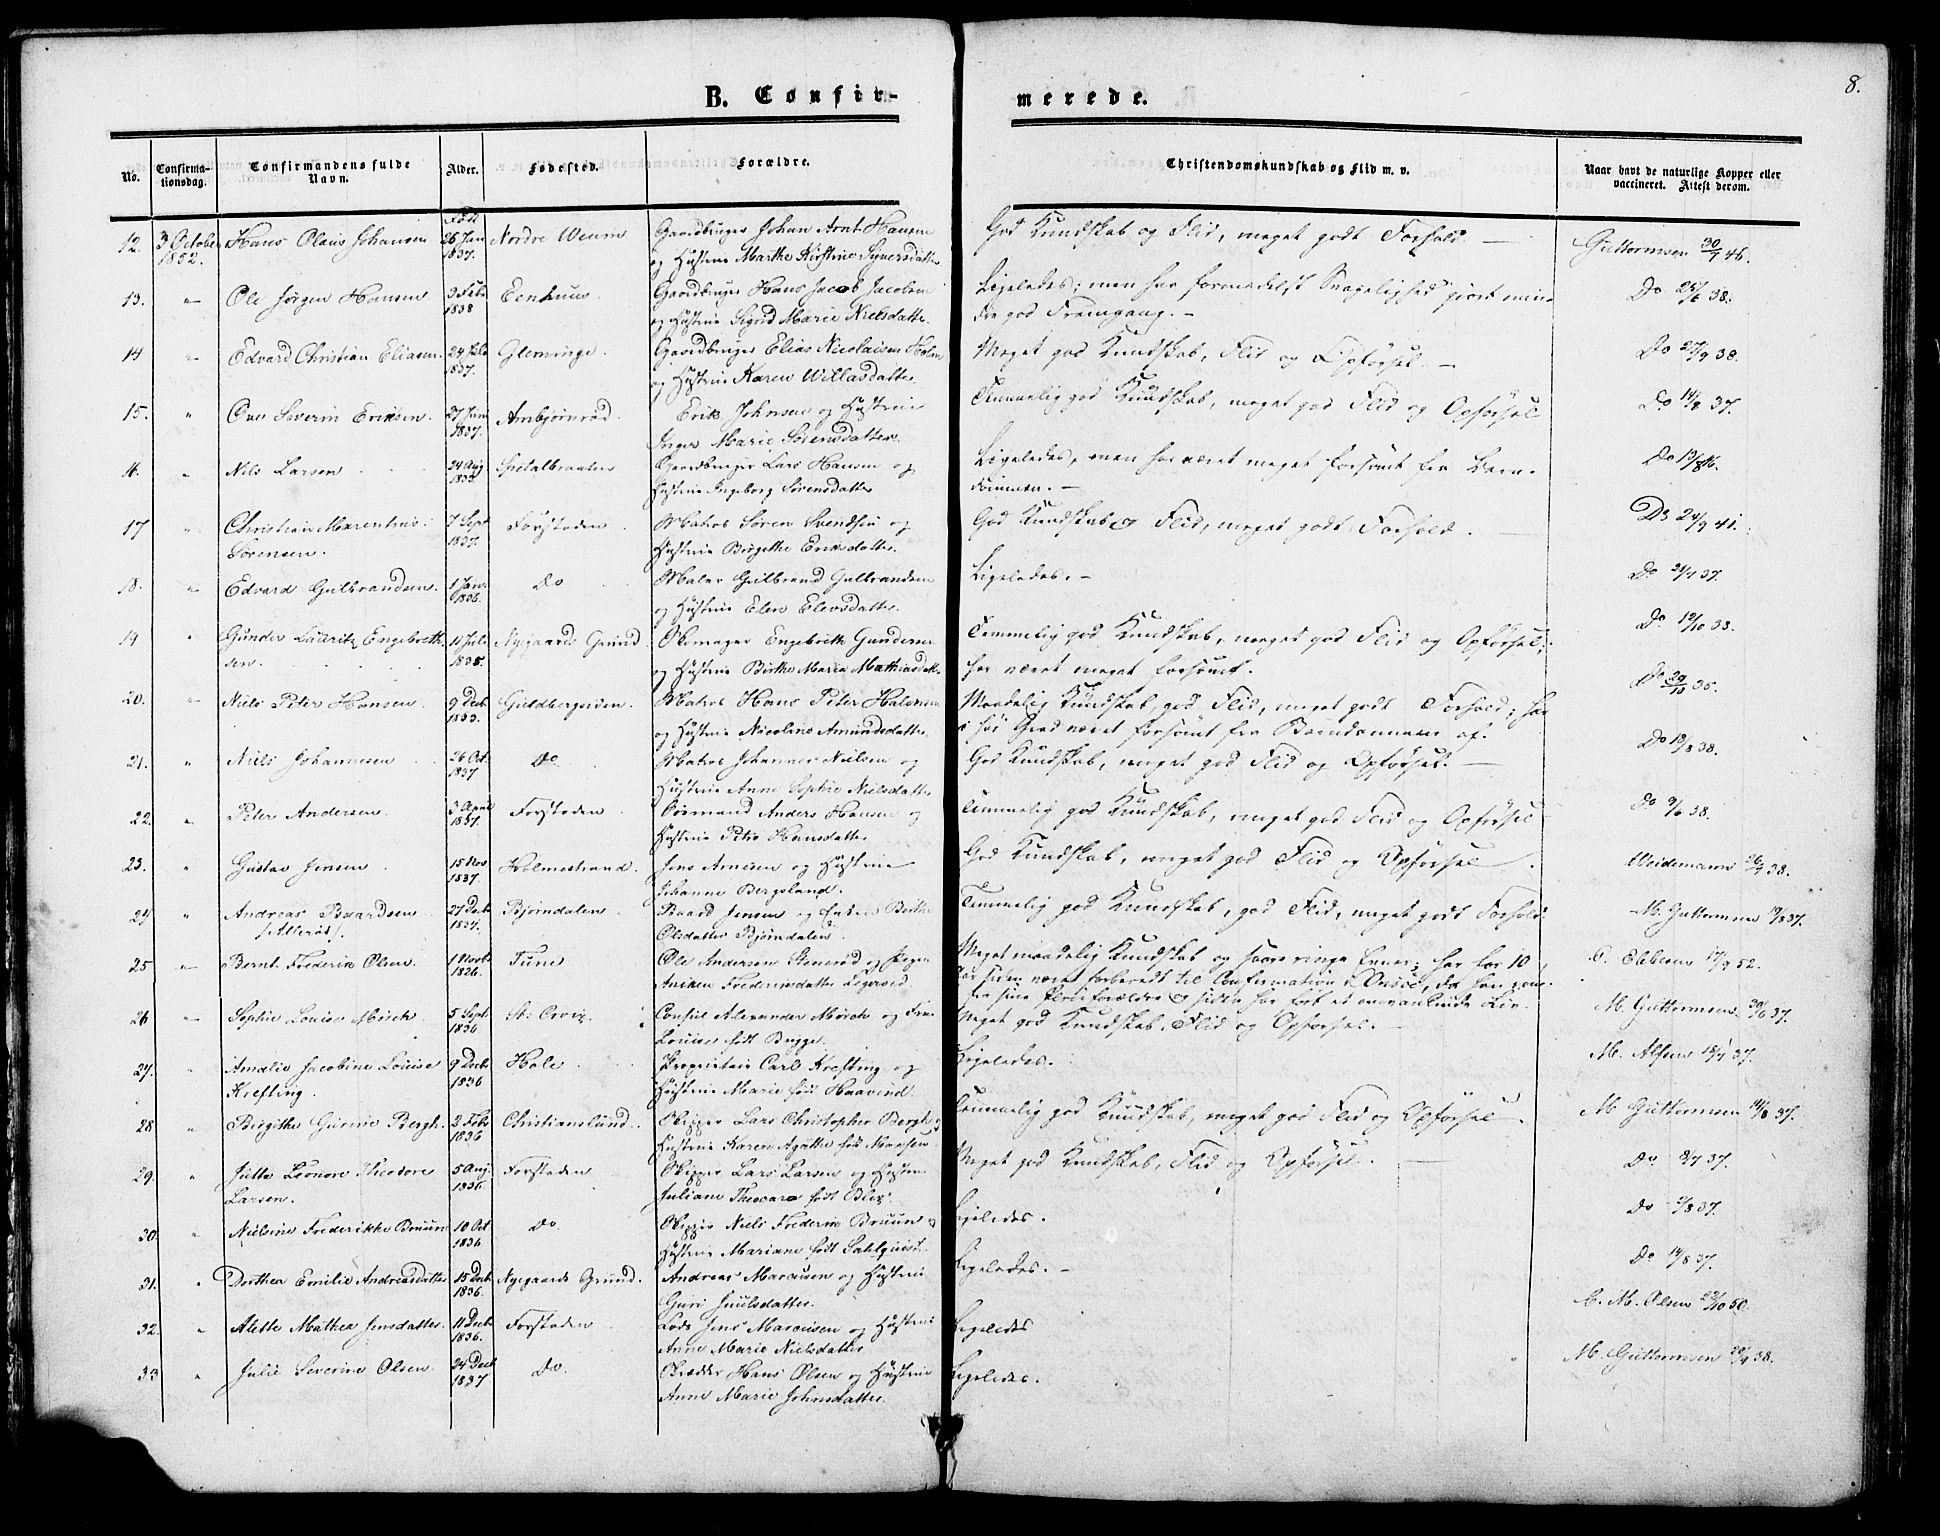 8.
B. Confir-
merede.
No.
Confirma-
tionsdag.
Confirmandens fulde
Navn.
Alder.
Fødested.
Forældre.
Christendomskundskab og Flid m. v.
Naar havt de naturlige Kopper eller
vaccineret. Attest derom.
12. 3 October 1852. Hans Olaus Johansen Fød 26 Jan 1837. Nordre Gaardbruger Johan Arnt Hansen
og Hustrue Marthe Kirstine Syversdatter
God Kundskab og Flid, meget godt Forhold. — Guttormsen 30/7 46.
13. " Ole Jørgen Hansen 3 Feb 1838 Eenhuus. Gaardbruger Hans Jacob Jacobsen
og Hustrue Sigrid Marie Nielsdatter.
Ligeledes; men har formedelst Svagelighed gjort min-
dre god Fremgang. — Do 25/6 38.
14 " Edvard Christian Eliasen 24 1837. Gleminge. Gaardbruger Elias Nicolaisen Holm
og Hustrue Karen Willasdatter.
Meget god Kundskab, Flid og Opførsel. — Do 27/9 38.
15. " Ove Severin Eriksen. 27 Jan 1837. Ambjørnrød. Erik Johnsen og Hustrue
Inger Marie Sørensdatter.
Temmelig god Kundskab, meget god Flid og Opførsel Do 14/8 37.
16. " Nils Larsen 24 Aug Spetalbraaten Gaardbruger Lars Hansen og
Hustrue Ingeborg Sørensdatter
Ligeledes, men har været meget forsømt fra Barn-
dommen. — Do 13/8
17 " Christian Marentius 7 Sept 1837. Forstaden. Matros Søren Svendsen og
Sørensen. Hustrue Birgithe Eriksdatter.
God Kundskab og Flid, meget godt Forhold. — Do 24/9 41.
18. " Edvard Gulbrandsen. 1 Jan. 1836. Do Maler Gulbrand Gulbrandsen
og Hustrue Elen Elevsdatter.
Ligeledes. — Do 21/7 37.
19 " Gunder Lauritz Engebreth- 11 Nygaards Grund Skomager Engebrith Gundersen
sen. og Hustrue Birthe Maria Mathiasdatter
Temmelig god Kundskab, meget god Flid og Opførsel;
har været meget forsømt. Do 12/10 38.
20. " Niels Peter Hansen 9 Decb 1833. Guldbergsiden. Matros Hans Peter Halvorsen
og Hustrue Nicoline Amundsdatter
Maadelig Kundskab, god Flid, meget godt Forhold; har
i høi Grad været forsømt fra Barndommen af. Do 29/10 35.
21. " Niels Johannesen 26 Oct. 1837 Do Matros Johannes Nielsen og
Hustrue Anne Sophie Nielsdatter
God Kundskab, meget god Flid og Opførsel. — Do 13/8 38.
22. " Peter Andersen 3 April 1837. Forstaden Sømand Anders Hansen og
Hustrue Petro Hansdatter
Temmelig god Kundskab, meget god Flid og Opførsel Do 9/6 38.
23. " Gustav Jensen 15 Nov 1837. Holmestrand. Jens Arnesen og Hustrue
Johanne Bergsland.
God Kundskab, meget god Flid og Opførsel. Weidemann 38.
24 " Andreas Baardsen 27 Decb 1837. Bjørndalen. Baard Jensen og Enke Birthe
/Allerød/. Olsdatter Bjørndalen.
Temmelig god Kundskab, god Flid, meget godt Forhold. M. Guttormsen 19/8 37.
25 " Bernt Frederik Olsen 1 Novb 1826. Tune Ole Andersen Stenerød og Pigen
Aniken Frederiksdatter
Meget maadelig Kundskab og saare ringe Evner; har for 10
Aar siden været forberedt til Confirmation i Onsøe, da han
fra sine Pleieforældre og siden har ført et omvankende Liv. C. Ebbesen 17/9 52.
26 " Sophie Louise Mörch. 5 Sept 1836 St: Croix. Consul Alexander Mörch og Frue
Louise født Bugge.
Meget god Kundskab, Flid og Opførsel. — M. Guttormsen 30/6 37.
27. " Amalie Jacobine Louise 9 Decb 1836 Hole. Proprietair Carl Krefting og
Krefting. Hustrue Marie født Haavind.
Ligeledes. M. Alsen 15/7 37.
28 " Birgithe Gurine Bergh. 2 Feb 1836 Christianslund. Skipper Lars Christopher Bergh og
Hustrue Karen Agathe født Monsen
Temmelig god Kundskab, meget god Flid og Opførsel. M Guttormsen 14/8 37.
29. " Jutta Leonore Theodore 5 Aug 1836. Forstaden Skipper Lars Larsen og Hustrue
Larsen. Juliane Theocara født Blix.
Meget god Kundskab, Flid og Opførsel. — Do 8/7 37.
30. " Nielsine Frederikke Bruun 10 Oct 1836 Do Skipper Niels Frederik Bruun og
Hustrue Mariane født Sahlquist
Ligeledes. Do 5/8 37.
31. " Dorthea Emilie Andreasdatter 15 Decb 1836. Nygaards Grund. Andreas Marcusen og Hustrue
Guri Juulsdatter.
Ligeledes. — Do 14/8 37.
32. " Alette Mathea Jensdatter. 11 Decb 1836. Forstaden Lods Jens Marcusen og Hustrue
Anne Marie Nielsdatter.
Ligeledes C. M. Olsen 23/10 50.
33 " Julie Severine Olsen. 24 Decb 1837 Do. Hans Olsen og Hustrue
Anne Marie Johnsdatter.
Ligeledes. M. Guttormsen 20/9 38.